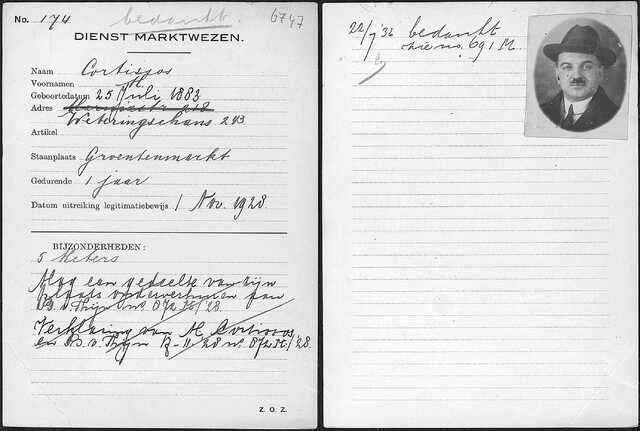 No. 174
bedankt.
6747
DIENST MARKTWEZEN.
Naam Cortissos
Voornamen M
Geboortedatum 25 Juli 1883
Adres 218
Weteringschans 243
Artikel
Staanplaats Groentenmarkt
Gedurende 1 jaar
Datum uitreiking legitimatiebewijs 1 Nov. 1928.
BIJZONDERHEDEN:
5 Meters
Mag een gedeelte van zijn
plaats onderverhuren aan
v. Thijn no. 872 M/'28.
Verklaring van M. Cortissos
en v. Thijn 11-28 no. 872 M/'28.
Z. O. Z.
22/7 '32 bedankt
zie no. 691 M.